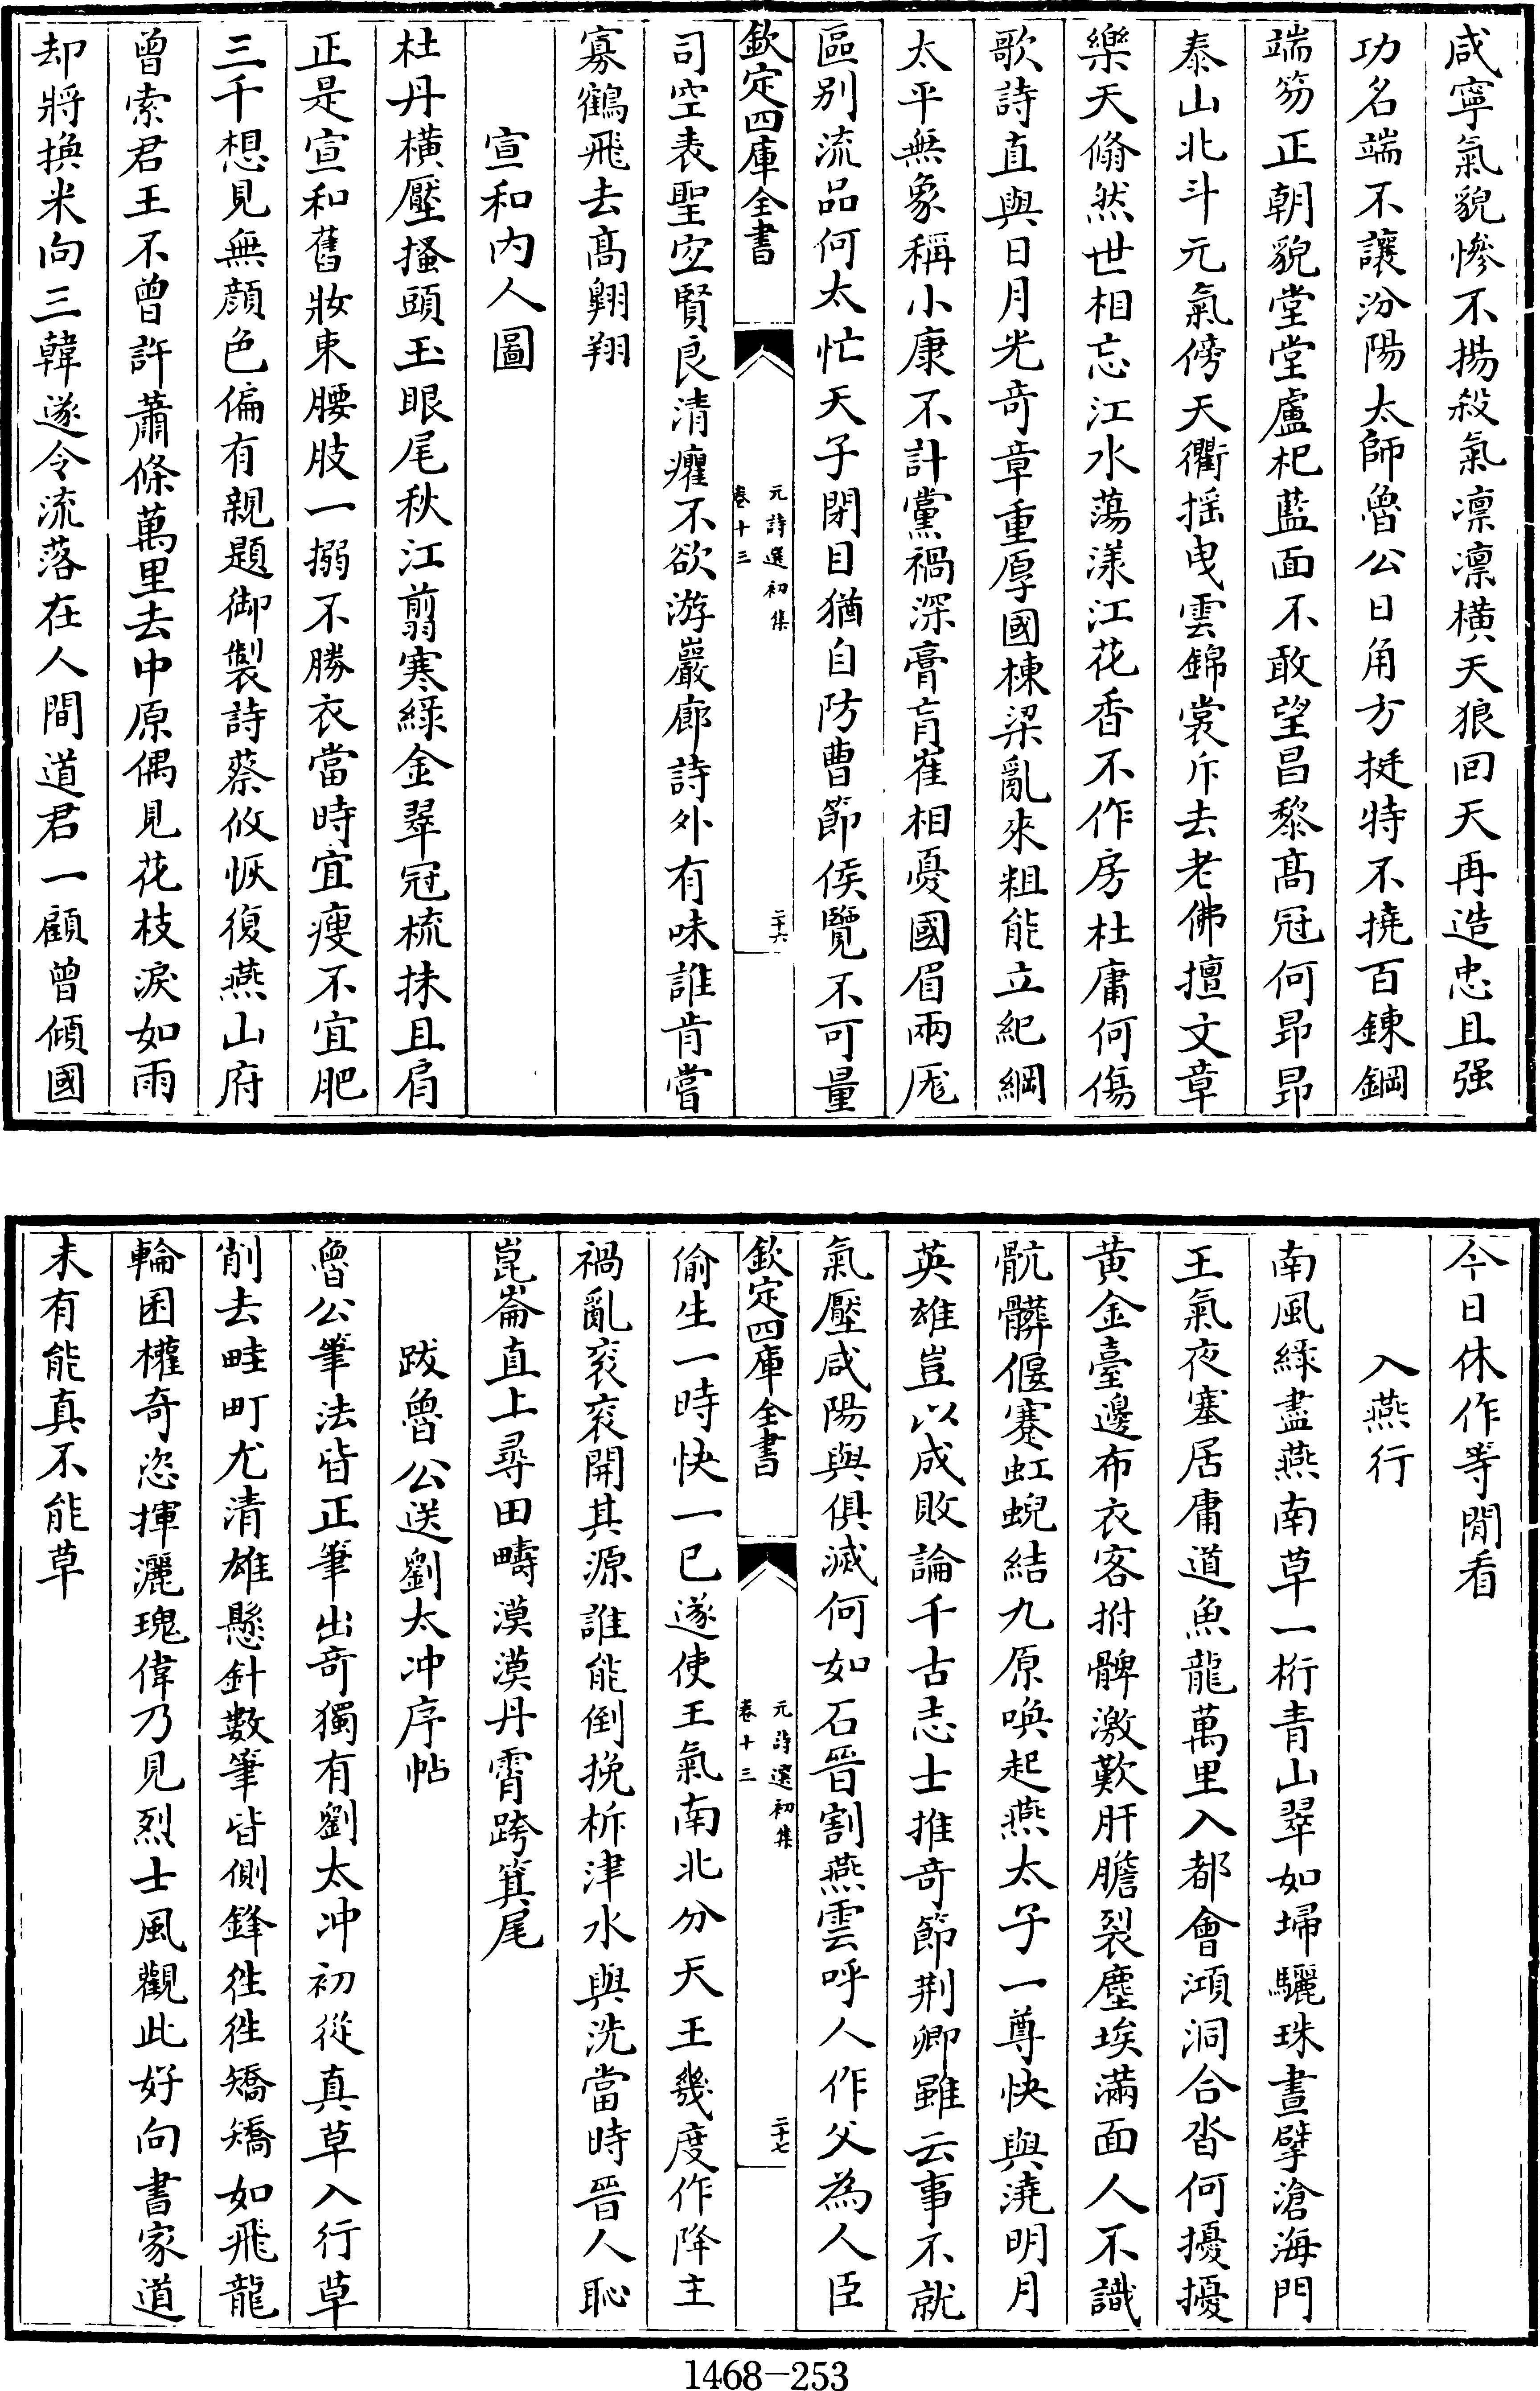 咸寧氣貌慘不揚殺氣凛凛橫天狼回天再造忠且强
功名端不讓汾陽太師魯公日角方挺特不撓百鍊鋼
端笏正朝貌堂堂盧𣏌藍面不敢望昌黎髙冠何昂昂
泰山北斗元氣傍天衢揺曳雲錦裳斥去老佛擅文章
樂天翛然世相忘江水蕩漾江花香不作房杜庸何傷
歌詩直與日月光竒章重厚國棟梁亂來粗能立紀綱
太平無象稱小康不計黨禍深膏肓崔相憂國眉兩厖
區别流品何太忙天子閉目猶自防曹節侯覽不可量
欽定四庫全書
元詩選初集
卷十三
二十六
司空表聖空賢良清癯不欲游巖廊詩外有味誰肯嘗
寡鶴飛去髙翺翔
宣和内人圖
杜丹橫壓搔頭玉眼尾秋江翦寒緑金翠冠梳抹且肩
正是宣和舊妝束腰肢一搦不勝衣當時宜瘦不宜肥
三千想見無顔色偏有親題御製詩蔡攸恢復燕山府
曾索君王不曾許蕭條萬里去中原偶見花枝淚如雨
却將換米向三韓遂令流落在人間道君一顧曾傾國
今日休作等閒看
入燕行
南風緑盡燕南草一桁青山翠如埽驪珠晝擘滄海門
王氣夜塞居庸道魚龍萬里入都會澒洞合沓何擾擾
黄金臺邊布衣客拊髀激歎肝膽裂塵埃滿面人不識
骯髒偃蹇虹蜺結九原喚起燕太子一尊快與澆明月
英雄豈以成敗論千古志士推竒節荆卿雖云事不就
氣壓咸陽與俱滅何如石晉割燕雲呼人作父為人臣
欽定四庫全書
元詩選初集
卷十三
二十七
偷生一時快一已遂使王氣南北分天王幾度作降主
禍亂衮衮開其源誰能倒挽析津水與洗當時晉人恥
崑崙直上尋田疇漠漠丹霄跨箕尾
跋魯公送劉太冲序帖
魯公筆法皆正筆出竒獨有劉太冲初從真草入行草
削去畦町尤清雄懸針數筆皆側鋒徃徃矯矯如飛龍
輪囷權奇恣揮灑瑰偉乃見烈士風觀此好向書家道
未有能真不能草
1468-253